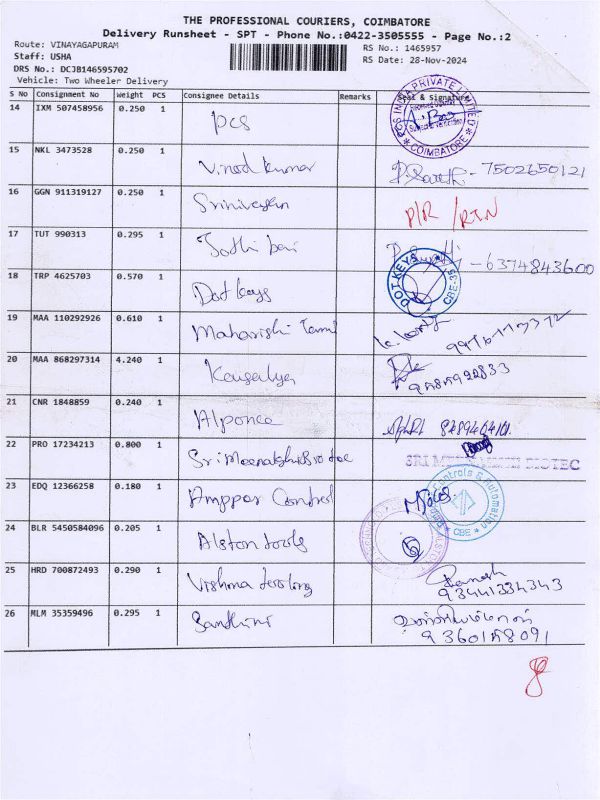 THE PROFESSIONAL COURIERS, COIMBATORE
Delivery Runsheet - SPT - Phone No.:0422-3505555 - Page No.:2
Route: VINAYAGAPURAM
RS No.: 1465957
Staff: USHA
RS Date: 28-Nov-2024
DRS No.: DCJB146595702
Vehicle: Two Wheeler Delivery
S No Consignment No Weight PCS Consignee Details Remarks Seal & Signature
14 IXM 507458956 0.250 1 pcs
INDIA PRIVATE LIMITED * COIMBATORE *
15 NKL 3473528 0.250 1 Vinod kumar - 7502650121
16 GGN 911319127 0.250 1 Srinivasan P/R /RTN
17 TUT 990313 0.295 1 Jothi bai - 6374843600
18 TRP 4625703 0.570 1 Dot keys DOT KEYS CBE-35
19 MAA 110292926 0.610 1 Maharishi Tamil
20 MAA 868297314 4.240 1 Kausalya
9585922833
21 CNR 1848859 0.240 1 Alponce
22 PRO 17234213 0.800 1 Sri Meenatshi Bio tec SRI BIOTEC
23 EDQ 12366258 0.180 1 Amppar Control Controls & Automation * CBE *
24 BLR 5450584096 0.205 1 Alston tools
25 HRD 700872493 0.290 1 Vishma Ramesh
93441334343
26 MLM 35359496 0.295 1 Santhini
9360158091